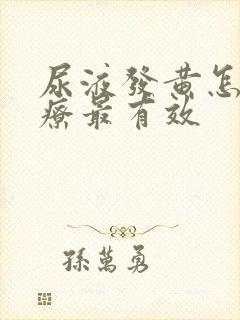 尿液發黄怎
療最有效
孫萬勇